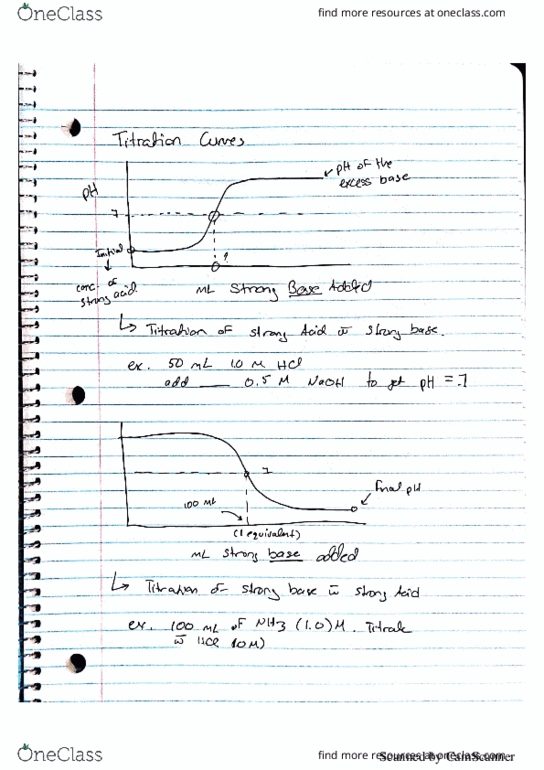 OneClass
find more resources at oneclass.com
Titration Curves
pH
pH of the
excess base
7
Initial
conc. of
strong acid.
?
mL Strong Base Added
↳ Titration of strong Acid w̄ strong base.
ex. 50 mL 1.0 M HCl
add ___ 0.5 M NaOH to get pH = 7
7
Final pH
100 mL
(1 equivalent)
mL strong base added
↳ Titration of strong base w̄ strong Acid
ex. 100 mL of NH3 (1.0) M. Titrate
w̄ HCl 1.0 M)
OneClass
find more resources at oneclass.com
Scanned by CamScanner